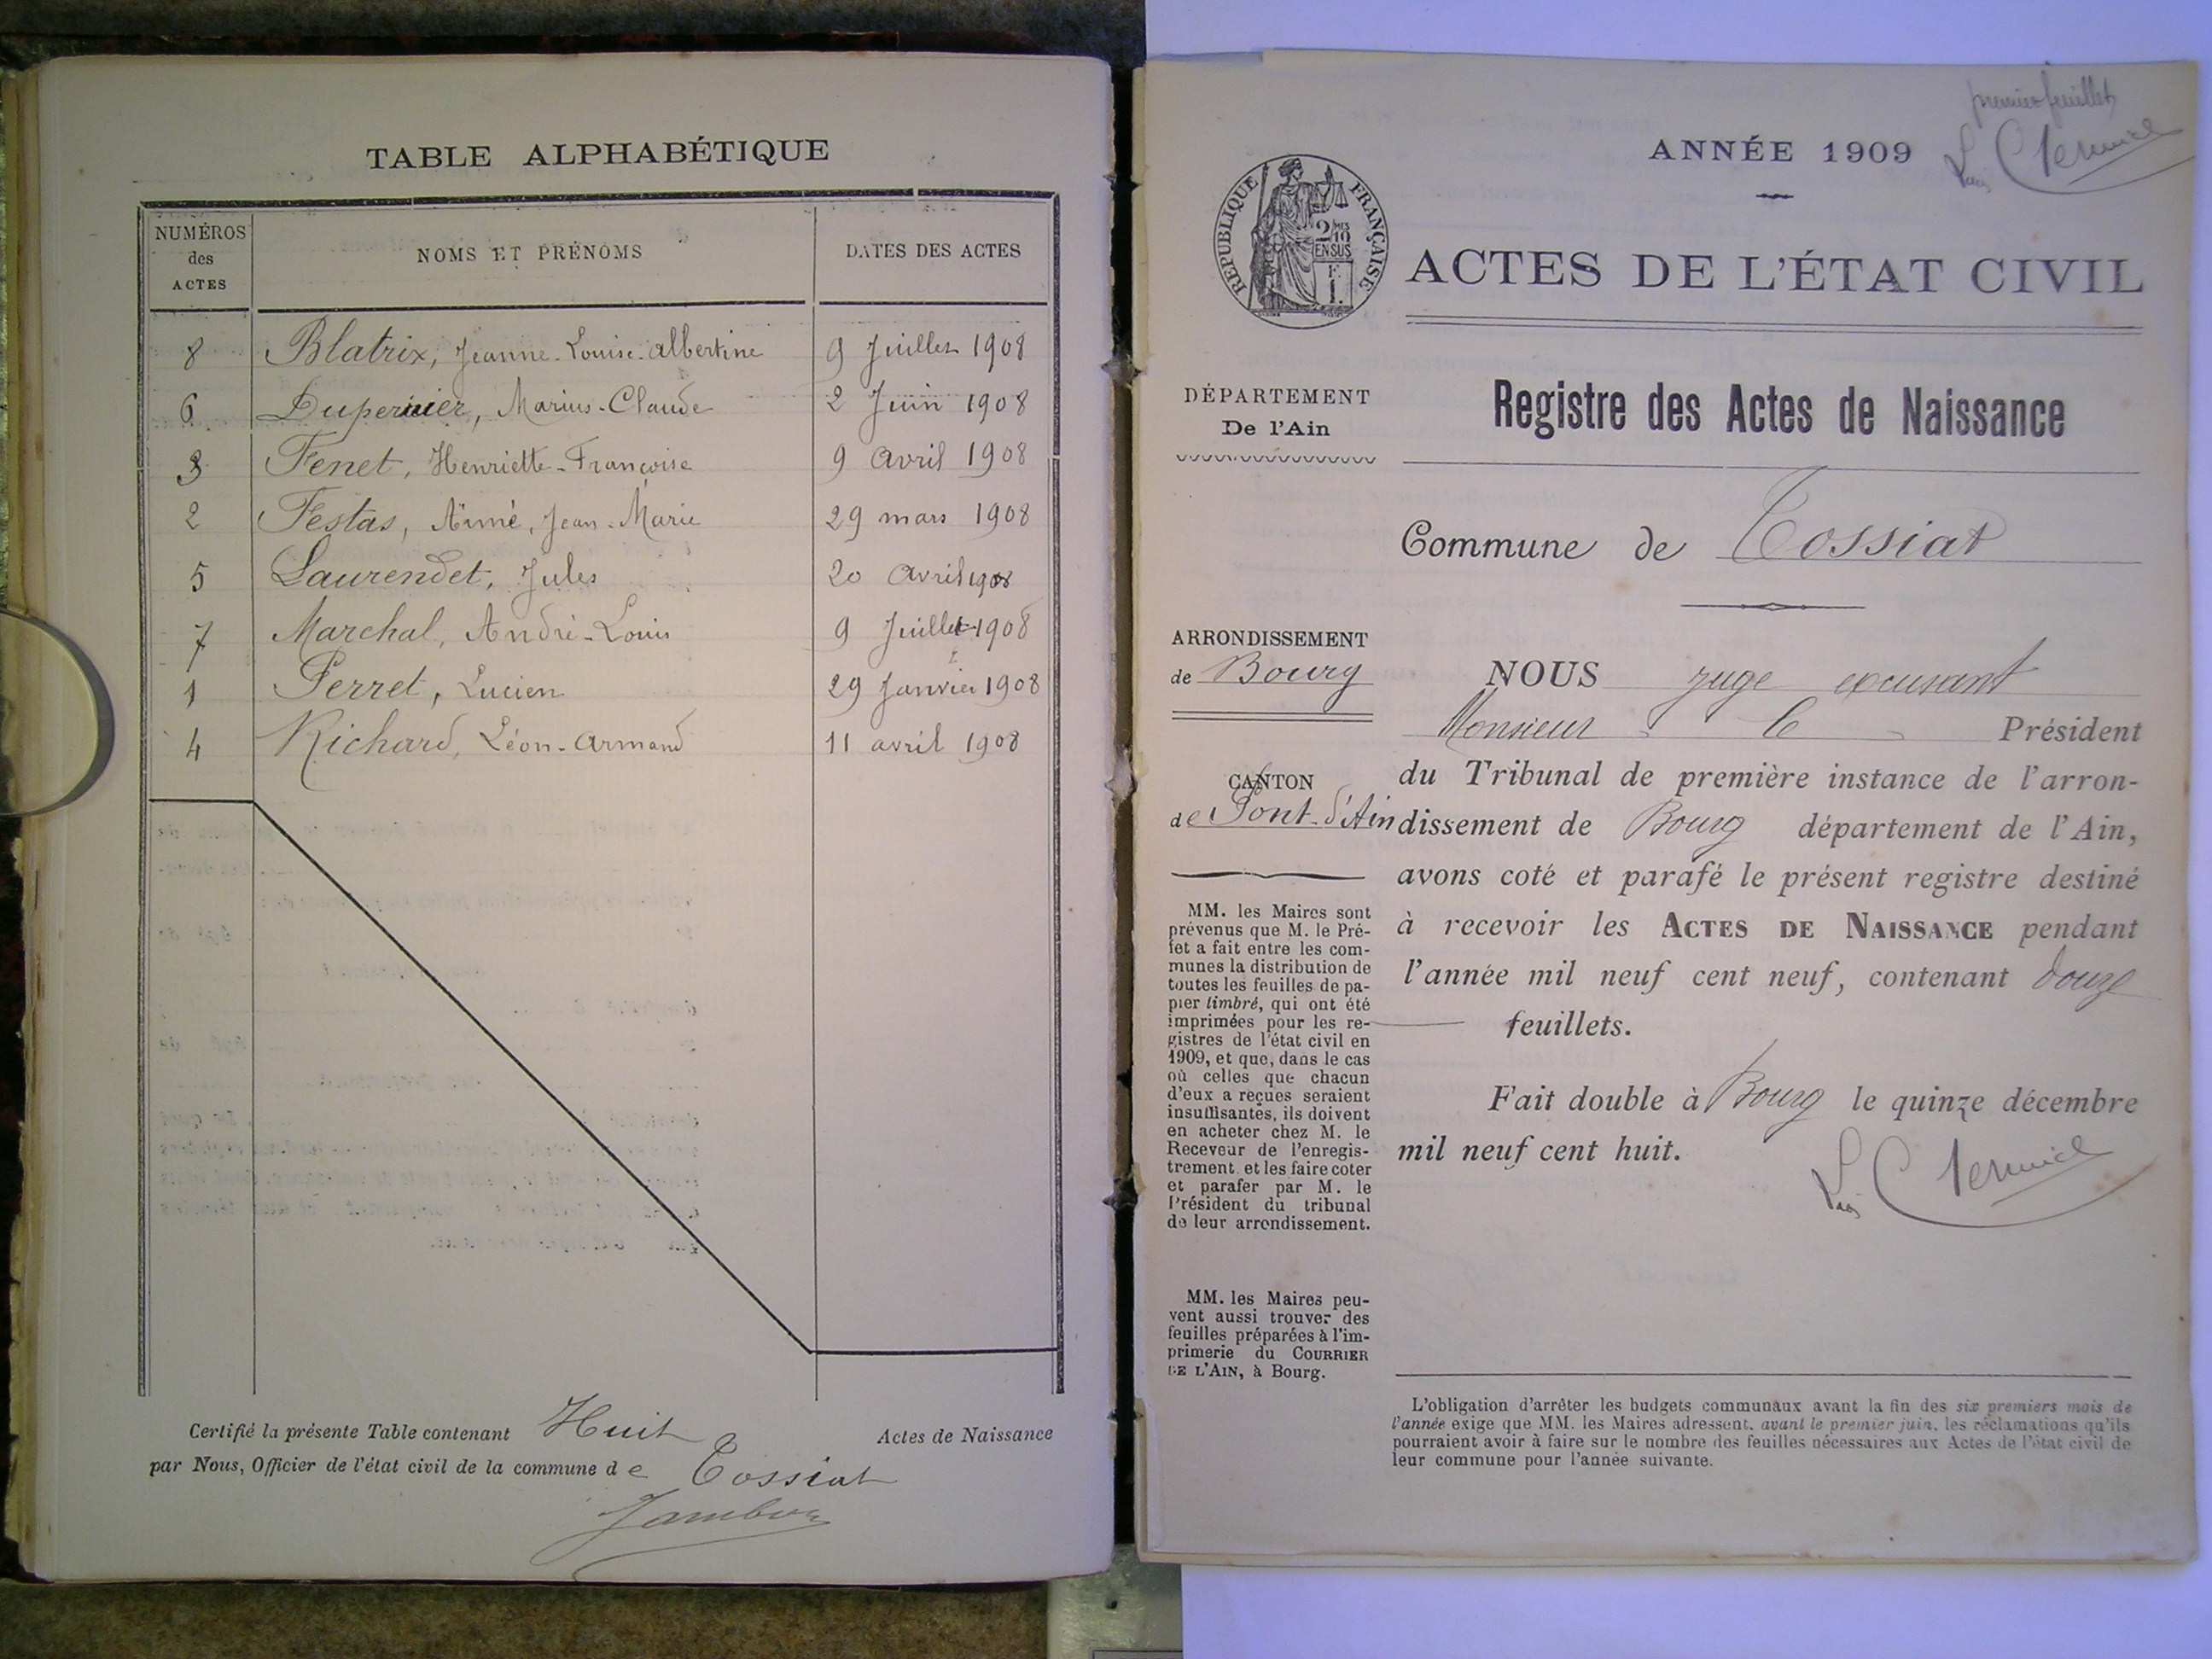 TABLE ALPHABÉTIQUE
NUMÉROS
des
ACTES
NOMS ET PRÉNOMS
DATES DES ACTES
8 Blatrix, Jeanne-Louise-Albertine 9 Juillet 1908
6 Dupernier, Marius-Claude 2 Juin 1908
3 Fenet, Henriette-Françoise 9 avril 1908
2 Festas, Aimé, Jean-Marie 29 mars 1908
5 Laurendet, Jules 20 avril 1908
7 Marchal, André-Louis 9 Juillet 1908
1 Perret, Lucien 29 Janvier 1908
4 Richard, Léon-Armand 11 avril 1908
Certifié la présente Table contenant Huit Actes de Naissance
par Nous, Officier de l'état civil de la commune de Tossiat
Jambon
premier feuillet
ANNÉE 1909
RÉPUBLIQUE FRANÇAISE
2/10 MES
EN SUS
F.
1.
ACTES DE L'ÉTAT CIVIL
DÉPARTEMENT
De l'Ain
Registre des Actes de Naissance
Commune de Tossiat
ARRONDISSEMENT
de Bourg
CANTON
de Pont-d'Ain
MM. les Maires sont
prévenus que M. le Pré-
fet a fait entre les com-
munes la distribution de
toutes les feuilles de pa-
pier timbré, qui ont été
imprimées pour les re-
gistres de l'état civil en
1909, et que, dans le cas
où celles que chacun
d'eux a reçues seraient
insuffisantes, ils doivent
en acheter chez M. le
Receveur de l'enregis-
trement et les faire coter
et parafer par M. le
Président du tribunal
de leur arrondissement.
MM. les Maires peu-
vent aussi trouver des
feuilles préparées à l'im-
primerie du COURRIER
DE L'AIN, à Bourg.
NOUS juge excusant
Monsieur le Président
du Tribunal de première instance de l'arron-
dissement de Bourg département de l'Ain,
avons coté et parafé le présent registre destiné
à recevoir les ACTES DE NAISSANCE pendant
l'année mil neuf cent neuf, contenant douze
feuillets.
Fait double à Bourg le quinze décembre
mil neuf cent huit.
L'obligation d'arrêter les budgets communaux avant la fin des six premiers mois de
l'année exige que MM. les Maires adressent, avant le premier juin, les réclamations qu'ils
pourraient avoir à faire sur le nombre des feuilles nécessaires aux Actes de l'état civil de
leur commune pour l'année suivante.